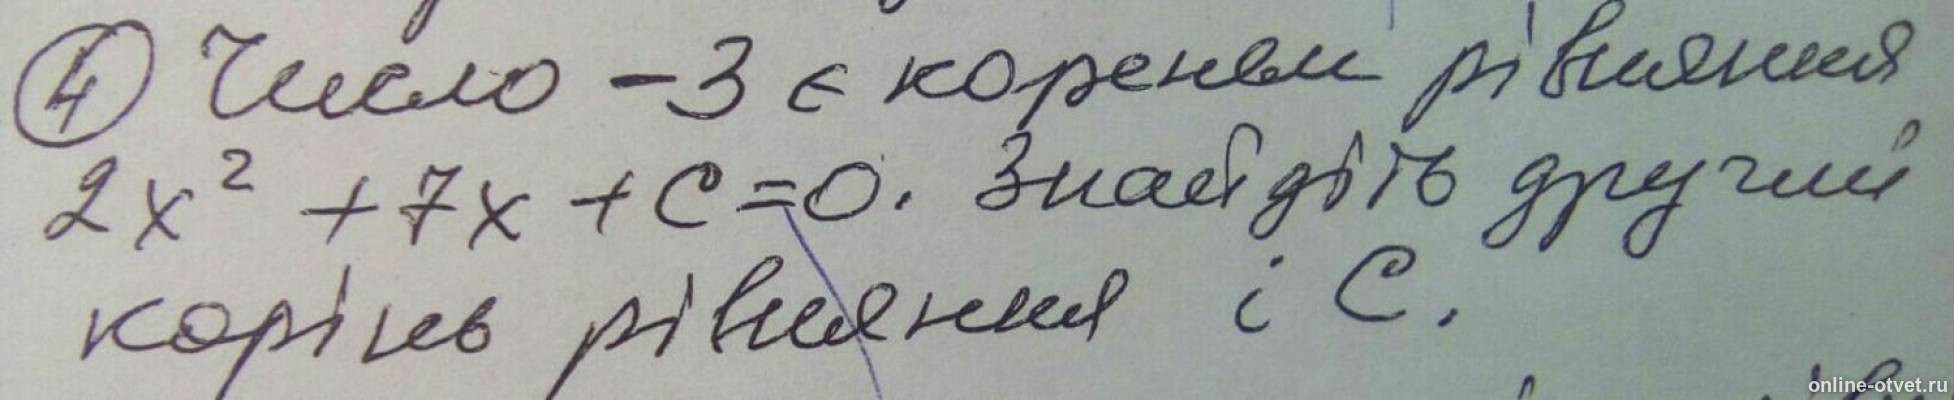 ④ Число -3 є коренем рівняння
2x² + 7x + C = 0. Знайдіть другий
корінь рівняння і C.
online-otvet.ru